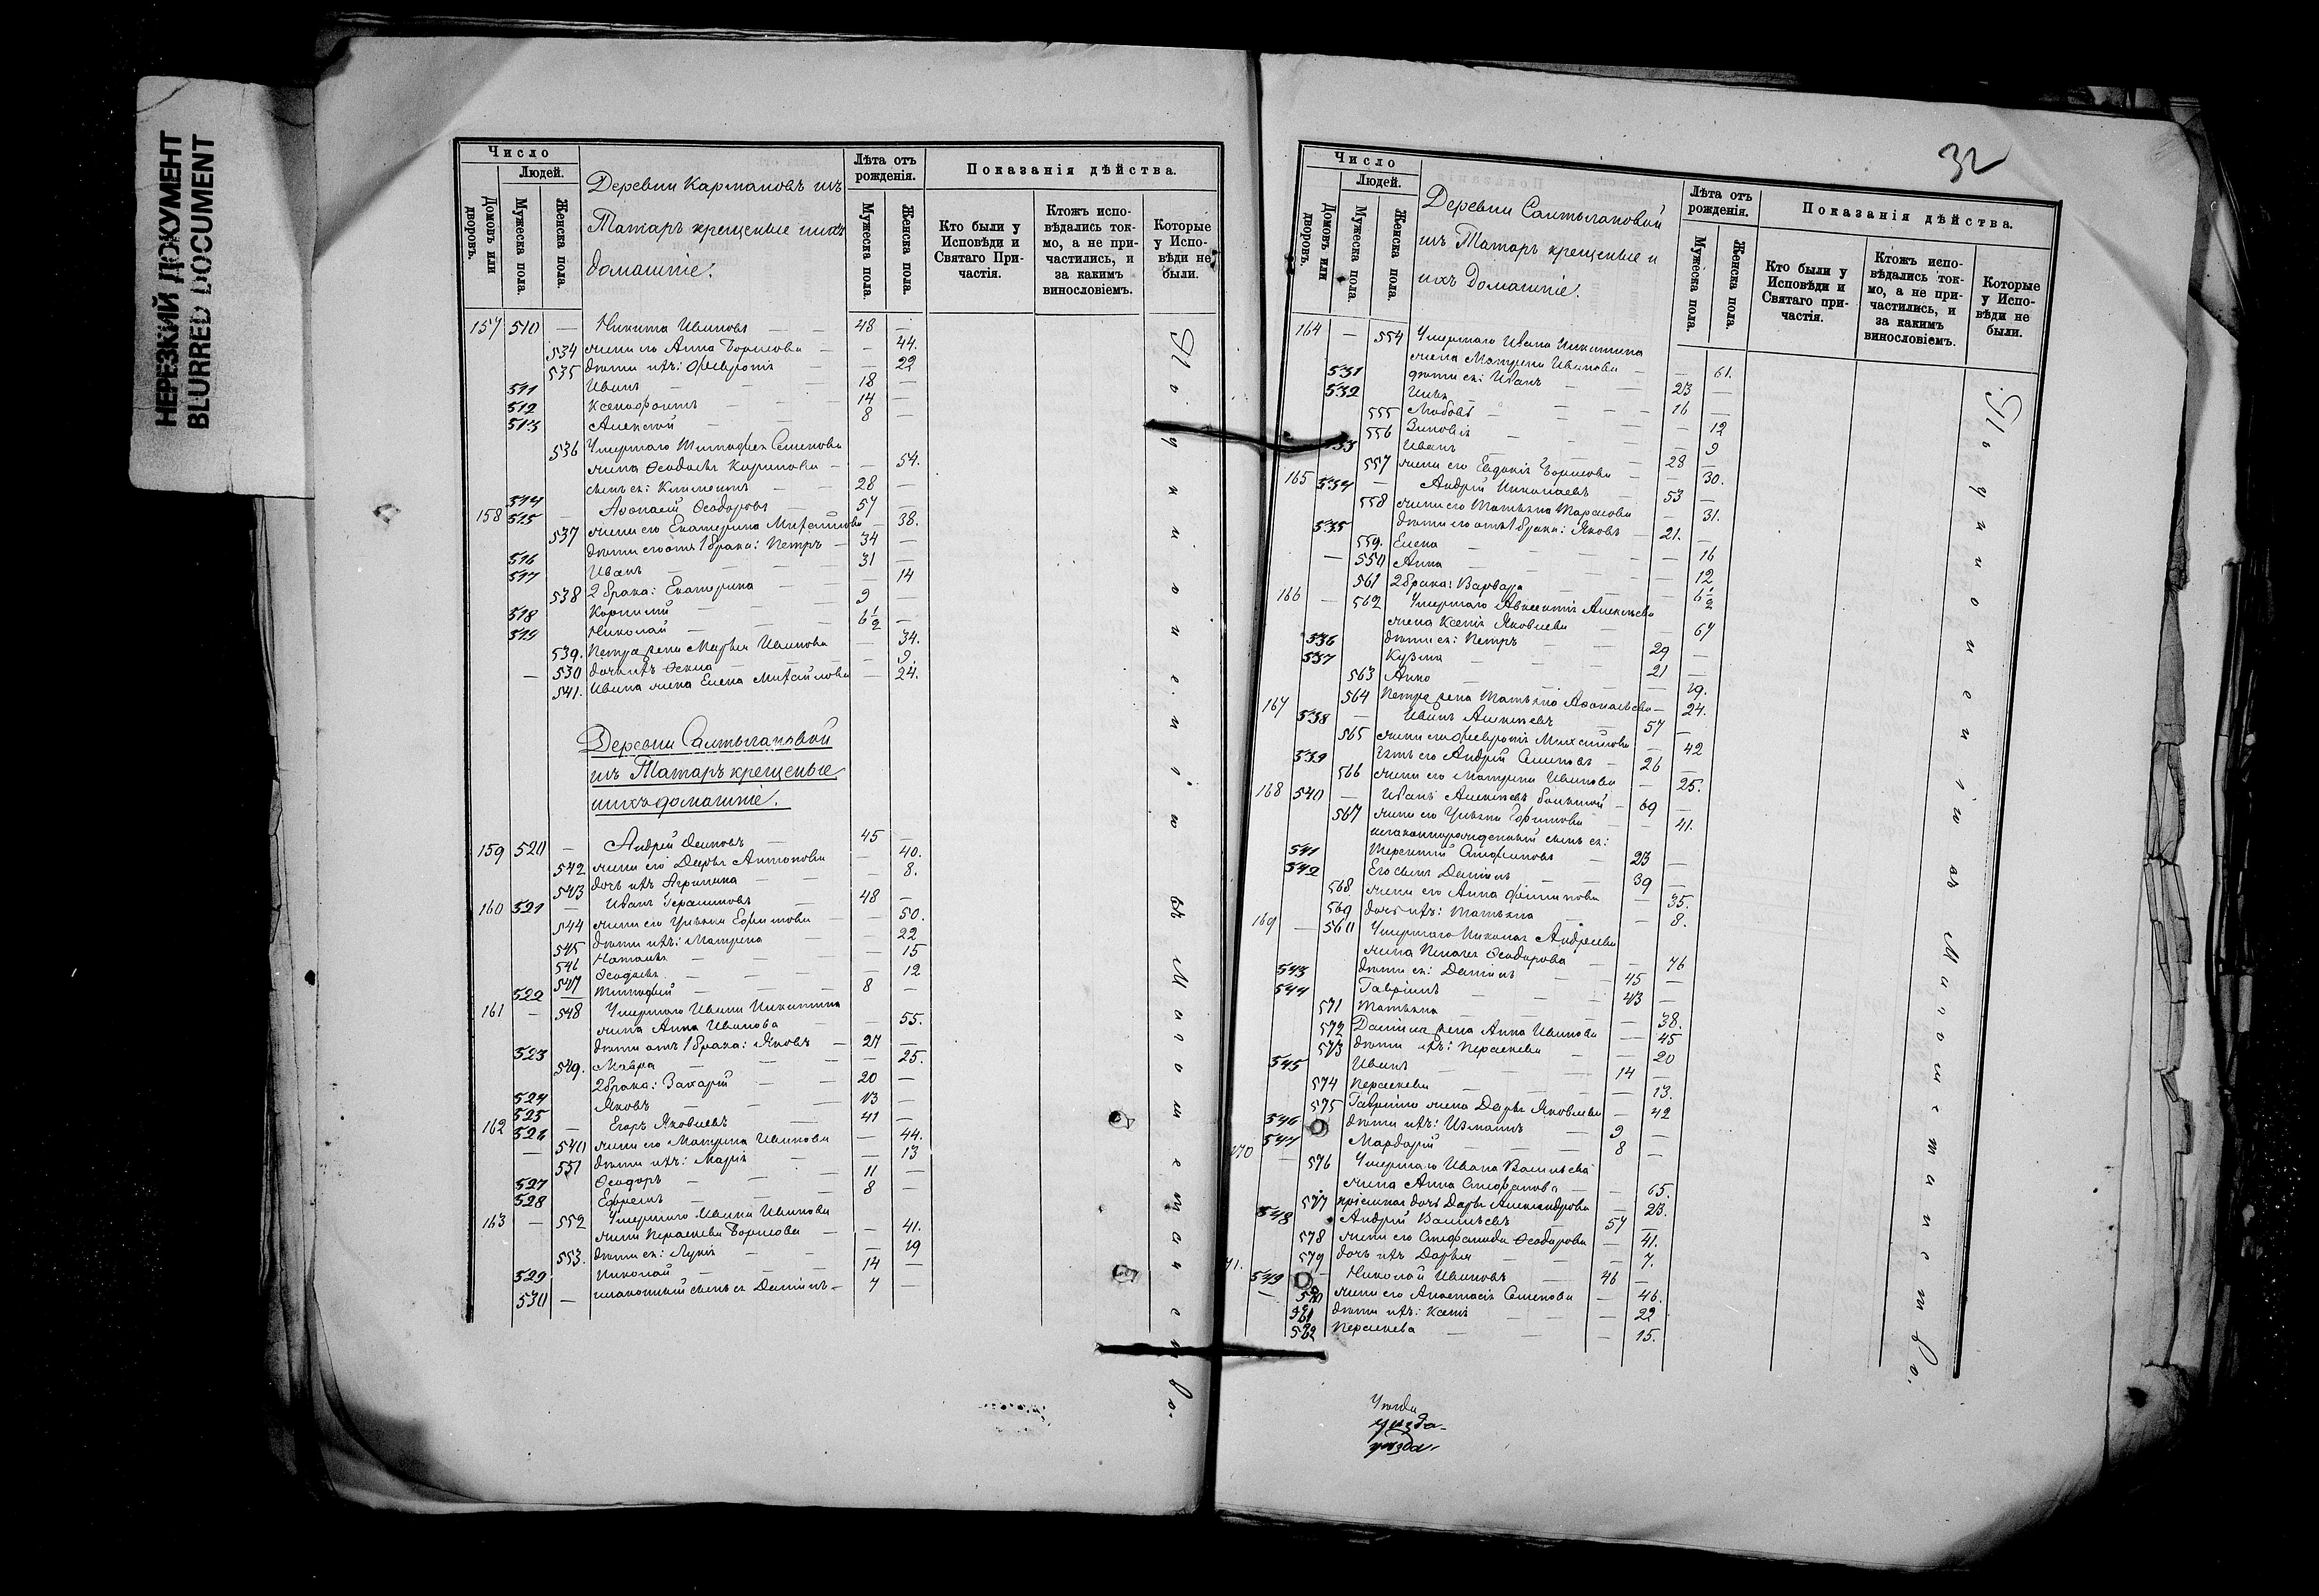 НЕРЕЗКИЙ ДОКУМЕНТ
BLURRED DOCUMENT
Число
Людей.
Домовъ или дворовъ.
Мужеска пола.
Женска пола.
Деревни Кармановъ изъ
Татаръ крещеные и ихъ
домашніе.
Лѣта отъ рожденія.
Мужеска пола.
Женска пола.
Показанія дѣйства.
Кто были у Исповѣди и Святаго Причастія.
Ктожъ исповѣдались токмо, а не причастились, и за какимъ винословіемъ.
Которые у Исповѣди не были.
157 510 — Никита Ивановъ — — 48 —
534 жена его Анна Борисова — — 44.
535 дѣти ихъ: Февронія — — 22
511 Иванъ — — 18 —
512 Ксенофонтъ — — 14 —
513 Алексѣй — — 8 —
536 Умершаго Тимофея Семенова
жена Ѳеодосья Кирилова — — 54.
514 сынъ ея: Климентъ — — 28 —
158 515 — Аѳонасій Ѳеодоровъ — 57 —
537 жена его Екатерина Михайлова — 38.
516 дѣти его отъ 1 брака: Петръ — 34 —
517 Иванъ — — 31 —
538 2 брака: Екатерина — — 14
518 Корнилій — — 9 —
519 Николай — — 6½ —
539. Петра жена Марья Иванова — 34.
530 дочь ихъ Ѳекла — — 9.
541. Ивана жена Елена Михайлова — 24.
Деревни Салтыгановой
изъ Татаръ крещеные
и ихъ домашніе.
159 520 — Андрей Осиповъ — 45 —
542 жена его Дарья Антонова — 40.
543 дочь ихъ Агрипина — — 8.
160 521 — Иванъ Герасимовъ — 48 —
544 жена его Ульяна Ефимова — — 50.
545 дѣти ихъ: Матрена — — 22
546 Наталья — — 15
547 Ѳеодосья — — 12
522 — Тимофей — — 8 —
161 — 548 Умершаго Ивана Никитина
жена Анна Иванова — — 55.
523 дѣти отъ 1 брака: Яковъ — 27 —
549. Мавра — — 25.
524 2 брака: Захарій — — 20 —
525 Яковъ — — 13 —
162 526 — Егоръ Яковлевъ — 41 —
— 540 жена его Матрена Иванова — 44.
551 дѣти ихъ: Марія — — 13
527 Ѳеодоръ — — 11 —
528 Ефремъ — — 8 —
163 — 552 Умершаго Ивана Иванова
жена Параскева Борисова — — 41.
553. дѣти ея: Лукія — — 19
529 Николай — — 14 —
530 — незаконный сынъ ея Даніилъ — 7 —
По упущенію въ Магометанство.
32
Число
Людей.
Домовъ или дворовъ.
Мужеска пола.
Женска пола.
Деревни Салтыгановой
изъ Татаръ крещеные и
ихъ Домашніе.
Лѣта отъ рожденія.
Мужеска пола.
Женска пола.
Показанія дѣйства.
Кто были у Исповѣди и Святаго причастія.
Ктожъ исповѣдались токмо, а не причастились, и за какимъ винословіемъ.
Которые у Исповѣди не были.
164 — 554 Умершаго Ивана Никитина
жена Матрена Иванова — — 61.
531 дѣти ея: Иванъ — 23 —
532 Илья — — 16 —
555 Любовь — — 12
556 Зиновія — — 9
533 Иванъ — — 28 —
557 жена его Евдокія Борисова — 30.
165 534 — Андрей Николаевъ — 53 —
558 жена его Татьяна Тарасова — 31.
535 дѣти его отъ 1 брака: Яковъ — 21. —
559. Елена — — 16
— 550 Анна — — 12
561 2 брака: Варвара — — 6½
166 — 562 Умершаго Авксентія Алексѣева
жена Ксенія Яковлева — — 67
536 дѣти ея: Петръ — — 29 —
537 Кузма — — 21 —
563 Анна — — 19.
564 Петра жена Татьяна Аѳонасьева — 24.
167 538 — Иванъ Алексѣевъ — 57 —
565 жена его Февронія Михайлова — 42
539 Зять его Андрей Семеновъ — 26 —
566 жена его Матрена Иванова — 25.
168 540 — Иванъ Алексѣевъ большой — 69 —
567 жена его Ульяна Ефимова — — 41.
незаконнорожденный сынъ ея:
541 Терентій Стефановъ — 23 —
542 Его сынъ Даніилъ — — 39 —
568 жена его Анна Филипова — 35.
569 дочь ихъ: Татьяна — — 8.
169 — 560 Умершаго Николая Андреева
жена Пелагея Ѳеодорова — — 76
543 дѣти ея: Даніилъ — — 45 —
544 Гавріилъ — — 43 —
571 Татьяна — — 38.
572 Даніила жена Анна Иванова — 45
573 дѣти ихъ: Параскева — — 20
545 Иванъ — — 14 —
574 Параскева — — 13.
575 Гавріила жена Дарья Яковлева — 42
546 дѣти ихъ: Игнатъ — 9 —
547 Мардарій — — 8 —
170 — 576 Умершаго Ивана Васильева
жена Анна Стефанова — — 65.
577 пріемная дочь Дарья Александрова — 23.
548 Андрей Васильевъ — 57 —
578 жена его Стефанида Ѳеодорова — 41.
579 дочь ихъ Дарья — — 7.
71. 549 — Николай Ивановъ — 46 —
— 580 жена его Анастасія Семенова — 46.
581 дѣти ихъ: Ксенія — — 22
582 Параскева — — 15.
По упущенію въ Магометанство.
уѣзда